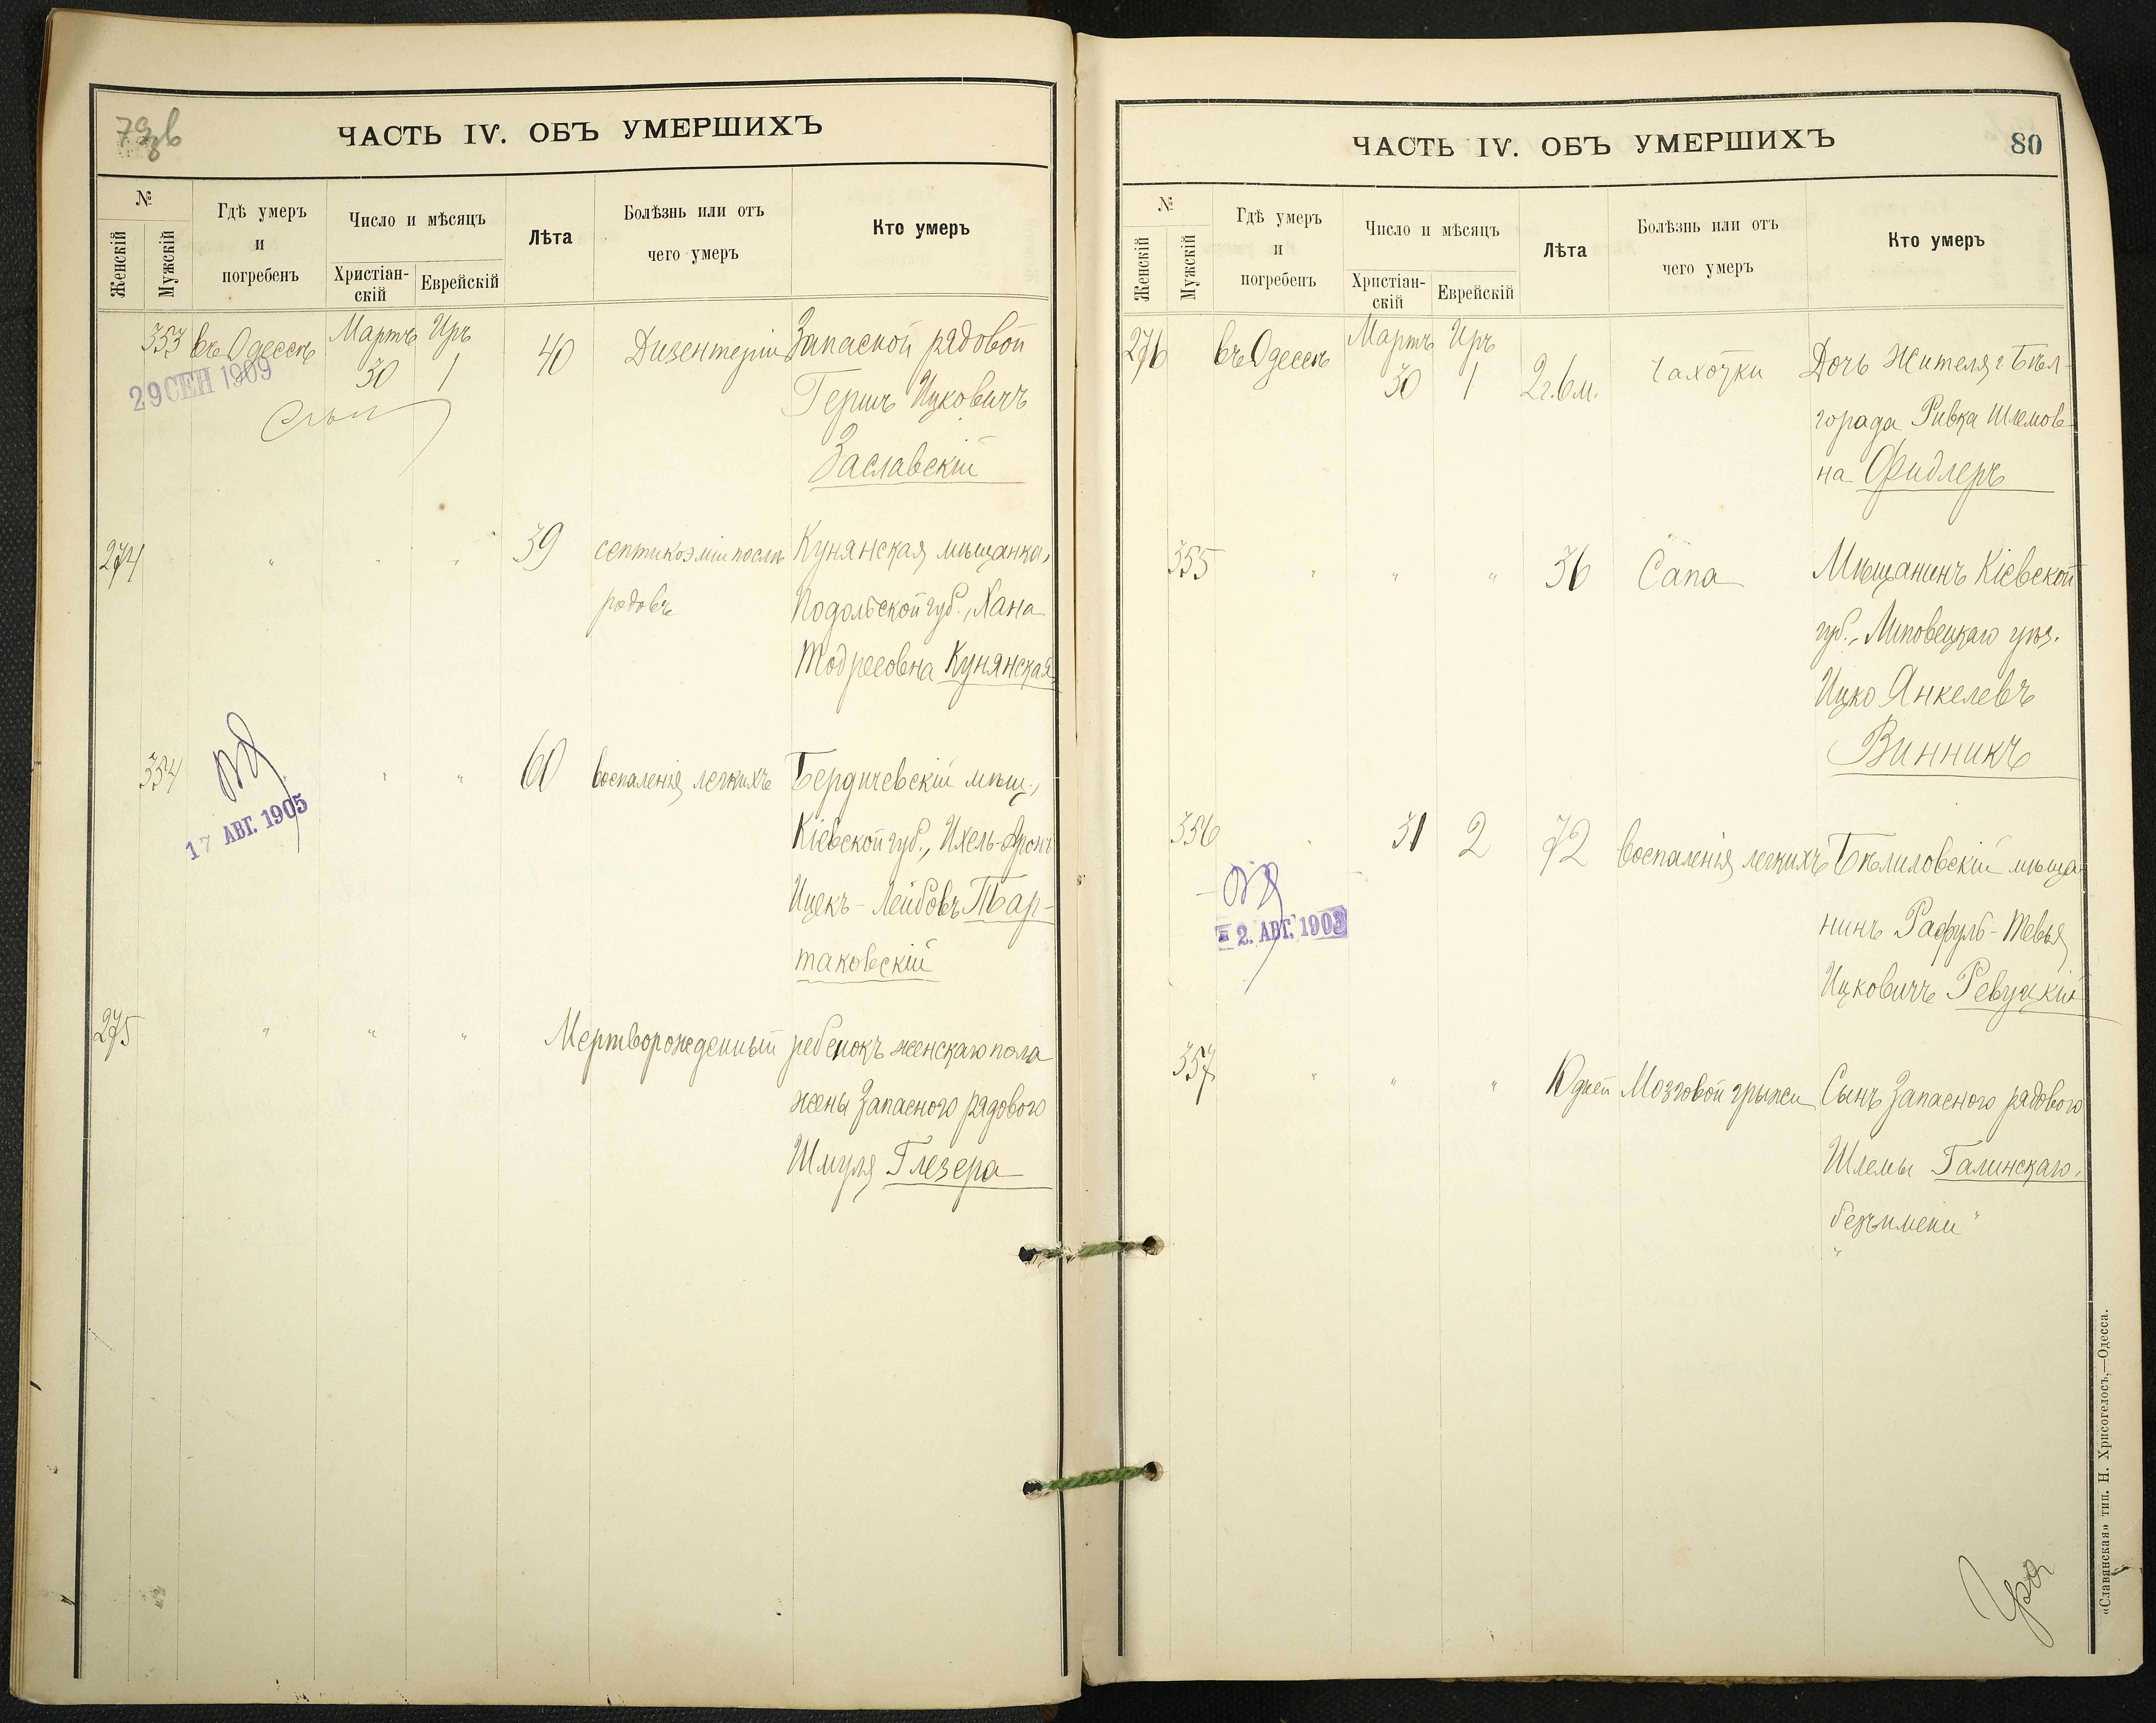 79об
ЧАСТЬ IV. ОБЪ УМЕРШИХЪ
№
Женскій
Мужскій
Гдѣ умеръ
и
погребенъ
Число и мѣсяцъ
Христіан-
скій
Еврейскій
Лѣта
Болѣзнь или отъ
чего умеръ
Кто умеръ
353 въ Одессѣ Мартъ 30 Иръ 1 40 Дизентеріи Запасной рядовой
Гершъ Ицковичъ
Заславскій
29 СЕН 1909
274 " " " 39 септикэміи послѣ Кунянская мѣщанка,
родовъ Подольской губ., Хана
Тодресовна Кунянская
354 " " 60 воспаленія легкихъ Бердичевскій мѣщ.,
Кіевской губ., Ихель-Аронъ
Ицекъ-Лейбовъ Тар-
таковскій
17 АВГ. 1905
275 " " " Мертворожденный ребенокъ женскаго пола
жены Запасного рядового
Шмуля Глезера
ЧАСТЬ IV. ОБЪ УМЕРШИХЪ
80
№
Женскій
Мужскій
Гдѣ умеръ
и
погребенъ
Число и мѣсяцъ
Христіан-
скій
Еврейскій
Лѣта
Болѣзнь или отъ
чего умеръ
Кто умеръ
276 въ Одессѣ Мартъ 30 Иръ 1 2г.6м. Чахотки Дочь Жителя г Бѣл-
города Ривка Шлемов-
на Фидлеръ
355 " " " 36 Сапа Мѣщанинъ Кіевской
губ., Липовецкаго уѣз.
Ицко Янкелевъ
Винникъ
356 " 31 2 72 воспаленія легкихъ Бѣлиловскій мѣща-
нинъ Рафуль-Тевья
Ицковичъ Ревуцкій
2. АВГ. 1903
357 " " " 10 дней Мозговой грыжи Сынъ Запасного рядового
Шлемы Галинскаго.
"безъ имени"
«Славянская» тип. Н. Хрисогелосъ,—Одесса.